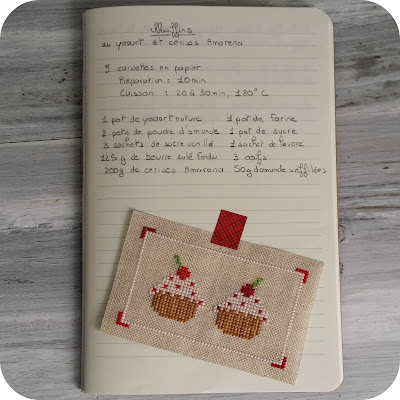 Muffins
au yaourt et cerises Amarena
9 caissettes en papier
Préparation : 10 min
Cuisson : 20 à 30 min, 180° C
1 pot de yaourt nature 1 pot de farine
2 pots de poudre d'amande 1 pot de sucre
3 sachets de sucre vanillé 1 sachet de levure
125 g de beurre salé fondu 3 oeufs
200g de cerises Amarena 50g d'amandes effilées